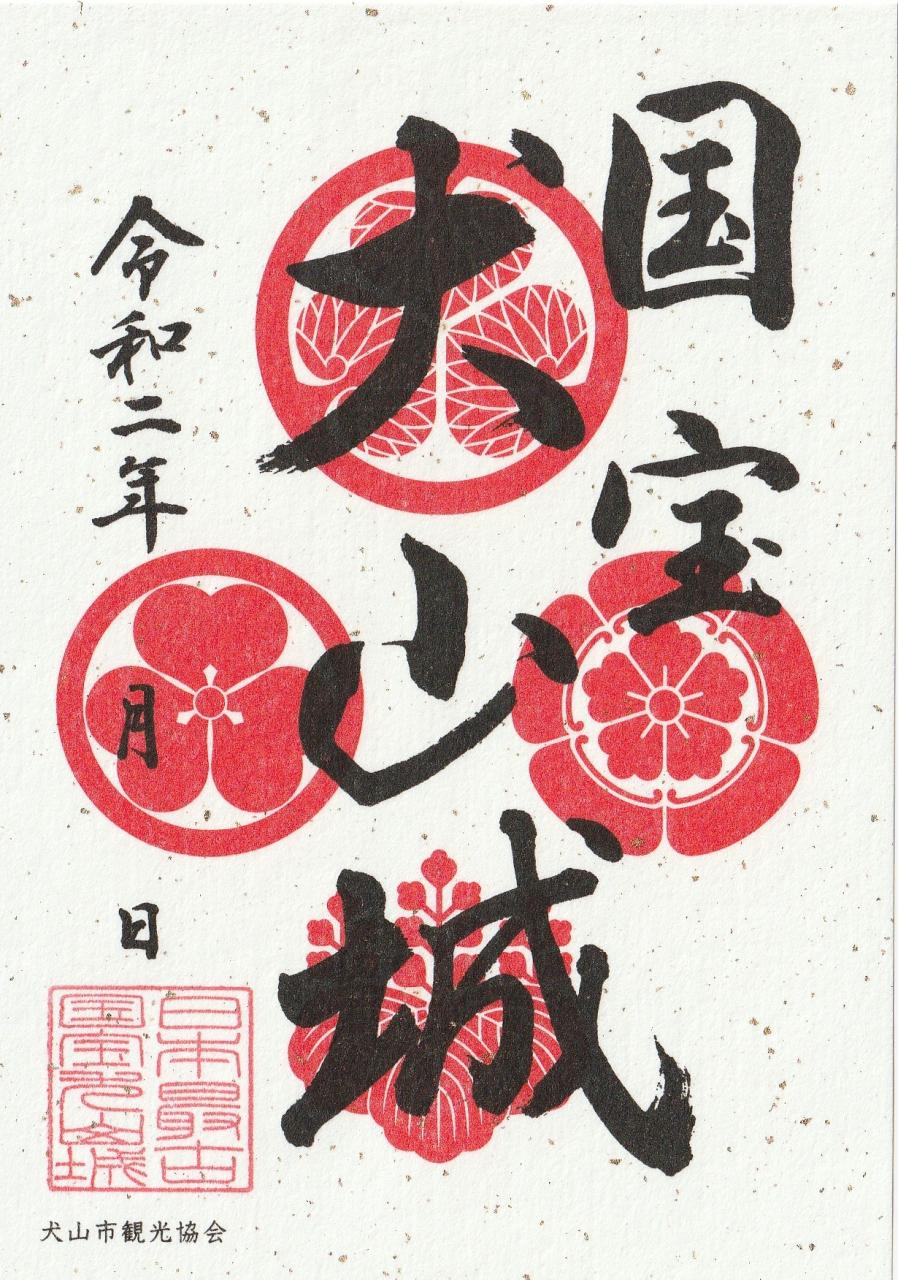 国宝
犬山城
令和二年
月
日
日本最古
国宝犬山城
犬山市観光協会